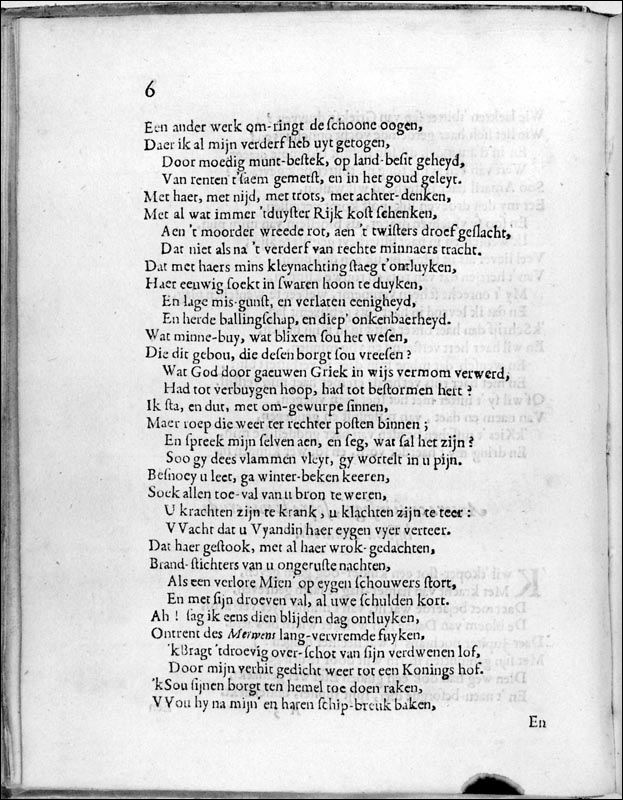 6
Een ander werk om-ringt de schoone oogen,
Daer ik al mijn verderf heb uyt getogen,
Door moedig munt-bestek, op land-besit geheyd,
Van renten t'saem gemetst, en in het goud geleyt.
Met haer, met nijd, met trots, met achter-denken,
Met al wat immer 'tduyster Rijk kost schenken,
Aen 't moorder wreede rot, aen 't twisters droef geslacht,
Dat niet als na 't verderf van rechte minnaers tracht.
Dat met haers mins kleynachting staeg t'ontluyken,
Haer eeuwig soekt in swaren hoon te duyken,
En lage mis-gunst, en verlaten eenigheyd,
En herde ballingschap, en diep' onkenbaerheyd.
Wat minne-buy, wat blixem sou het wesen,
Die dit gebou, die desen borgt sou vreesen?
Wat God door gaeuwen Griek in wijs vermom verwerd,
Had tot verbuygen hoop, had tot bestormen hert?
Ik sta, en dut, met om-gewurpe sinnen,
Maer roep die weer ter rechter posten binnen;
En spreek mijn selven aen, en seg, wat sal het zijn?
Soo gy dees vlammen vleyt, gy wortelt in u pijn.
Besnoey u leet, ga winter-beken keeren,
Soek allen toe-val van u bron te weren,
U krachten zijn te krank, u klachten zijn te teer:
VVacht dat u Vyandin haer eygen vyer verteer.
Dat haer gestook, met al haer wrok-gedachten,
Brand-stichters van u ongeruste nachten,
Als een verlore Mien' op eygen schouwers stort,
En met sijn droeven val, al uwe schulden kort.
Ah! sag ik eens dien blijden dag ontluyken,
Ontrent des Merwens lang-vervremde fuyken,
'kBragt 'tdroevig over-schot van sijn verdwenen lof,
Door mijn verhit gedicht weer tot een Konings hof.
'kSou sijnen borgt ten hemel toe doen raken,
VVou hy na mijn' en haren schip-breuk baken,
En